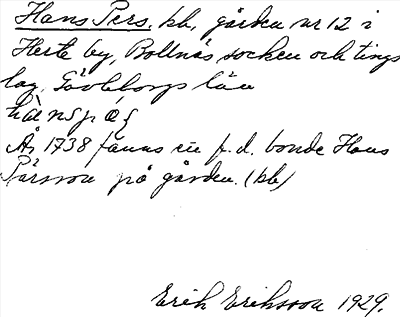 Hans Pers, kb, gården nr 12 i
Herte by, Bollnäs socken och tings
lag, Gävleborgs län
hànspæ̣ʂ
År 1738 fanns en f.d. bonde Hans
Pärsson på gården. (kb)
Erik Eriksson 1929.